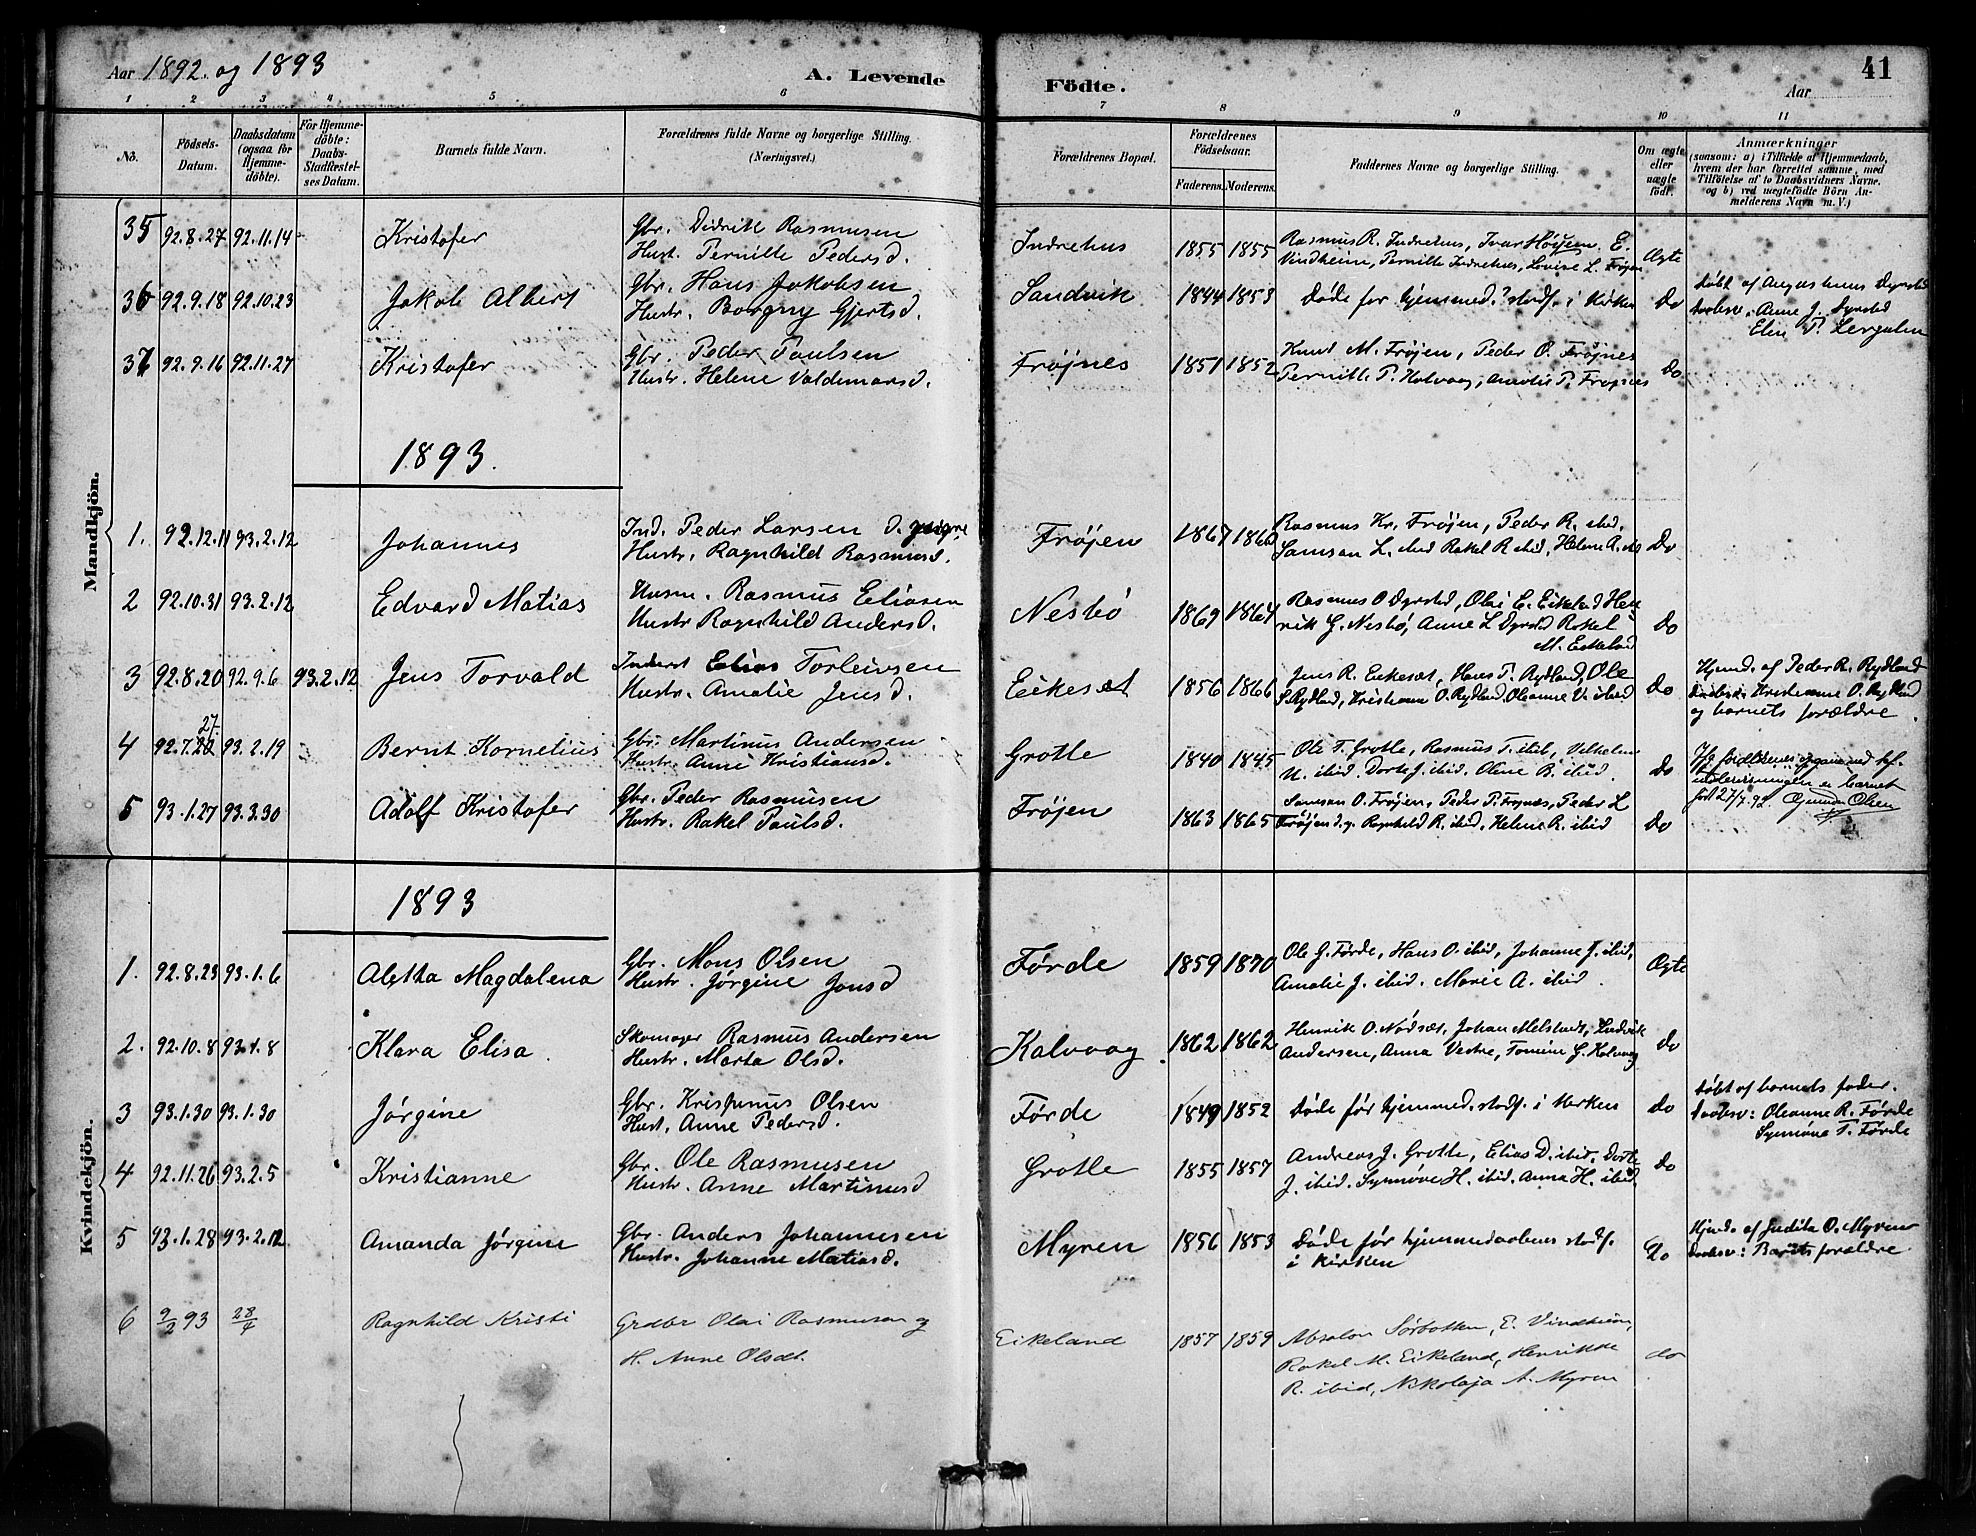 Aar 1892. og 1893
A. Levende Födte.
Aar
41
1 2 3 4 5 6 7 8 9 10 11
No.
Födsels-Datum.
Daabsdatum (ogsaa for Hjemme-döbte).
För Hjemme-döbte: Daabs-Stadfæstel-ses Datum.
Barnets fulde Navn.
Forældrenes fulde Navne og borgerlige Stilling. (Næringsvei.)
Forældrenes Bopæl.
Forældrenes Födselsaar.
Faderens. Moderens.
Faddernes Navne og borgerlige Stilling.
Om ægte eller uægte födt.
Anmærkninger
(saasom: a) i Tilfælde af Hjemmedaab, hvem der har forrettet samme, med Tilföielse af to Daabsvidners Navne, og b) ved uægtefödte Börn An-melderens Navn m. V.)
Mandkjön.
35 92.8.27 92.11.14 Kristofer
Gbr. Didrik Rasmusen
Hust. Pernille Pedersd.
Indrehus 1855 1855
Rasmus R. Indrehus, Ivar Høyem. E.
Vindheim, Pernille Indrehus, Lovise L. Frøjen
Ægte
36 92.9.18 92.10.23 Jakob Albert
Gbr. Hans Jakobsen
Hustr. Borgny Gjertsd.
Sandvik 1844 1853
Døde før hjemmed. stadf. i Kirken
Do
Døbt af
Anne J. Dyrstad
37 92.9.16 92.11.27 Kristofer
Gbr. Peder Paulsen
Hustr. Helene Valdemarsd.
Frøjnes 1851 1852
Knud M. Frøjen, Peder O. Frøjnes
Pernille P. Kalvaag, P. Frøjnes
Do
1893.
1. 92.12.11 93.2.12 Johannes
Ind. Peder Larsen d. yngre
Hustr. Ragnhild Rasmusd.
Frøjen 1867
Rasmus Kr. Frøjen, Peder R. ibid.
Samson L. ibid Rakel R ibid, Helene R. ib
Do
2 92.10.31 93.2.12 Edvard Matias
Husm. Rasmus Eliasen
Hustr Ragnhild Andersd.
Nesbö 1869 1864
Rasmus O Dyrstad, Olai E. Eikeland Hen
rik G. Nesbö, Anne L Dyrstad Rakel
M. Eikeland
Do
3 92.8.20 92.9.6 93.2.12 Jens Torvald
Inderst Elias Torleivsen
Hustr. Amalie Jensd.
Eikeset 1856 1866
Jens R. Eikeset, Hans T. Rydland, Ole
S Rydland, Kristianne O. Rydland, Oleanne V. ibid
Do
Hjmd. af Peder R. Rydland
Daabsv. Kristianne O. Rydland
og barnets forældre.
4 92.7.20 27 93.2.19 Bernt Kornelius
Gbr. Martinus Andersen
Hustr. Anne Kristiansd.
Grotle 1840 1845
Ole T. Grotle, Rasmus T. ibid, Vilhelm
N. ibid. Dorte J. ibid. Oline R. ibid.
Do
er barnet
født 27/7.92. Olsen
5 93.1.27 93.3.30 Adolf Kristofer
Gbr. Peder Rasmusen
Hustr. Rakel Paulsd.
Frøjen 1863 1865
Samson O. Frøjen, Peder P. Frøjnes, Peder L
Frøjen d.y. Ragnhild R. ibid, Helene R. ibid
Do
Kvindekjön.
1893
1. 92.8.23 93.1.6 Aletta Magdalena
Gbr. Mons Olsen
Hustr. Jørgine Jonsd
Førde 1859 1870
Ole G. Førde, Hans O. ibid, Johanne J. ibid,
Amalie J. ibid. Marie A. ibid.
Ægte
2. 92.10.8 93.1.8 Klara Elisa.
Skomager Rasmus Andersen
Hustr. Marta Olsd.
Kalvaag. 1862 1862
Henrik O. Nødset, Johan Melstad, Ludvik
Andersen, Anna Vestre, Tomine G. Kalvaag
Do
3 93.1.30 93.1.30 Jørgine
Gbr. Olsen
Hust. Anne Pedersd.
Førde 1849 1852
Døde før hjemmed. stadf. i kirken
Do
Døbt af barnets fader.
Daabsv: Oleanne R. Førde
Synnøva T. Førde
4 92.11.26 93.2.5 Kristianne
Gbr. Ole Rasmusen
Hustr. Anne Martinusd
Grotle 1855 1857
Andreas J. Grotle, Elias D. ibid. Dorte
J. ibid. Synnøve H. ibid. Anna H. ibid.
Do
5 93.1.28 93.2.12 Amanda Jørgine
Gbr. Anders Johannesen
Hustr. Johanne Matiasd.
Myren 1856 1853
Døde før hjemmedaabens stadf.
i kirken
Do
Hjmd. af Judita O. Myren
Daabsv: Barnets forældre
6 9/2 93 28/4 Ragnhild Kristi
Grdbr Olai Rasmusen og
H. Anne Olsdt.
Eikeland 1857 1859
Absalon Sørbotten, E. Vindheim,
Rakel M. Eikeland, Henrikke
R. ibid, Nikolaja A. Myren
do